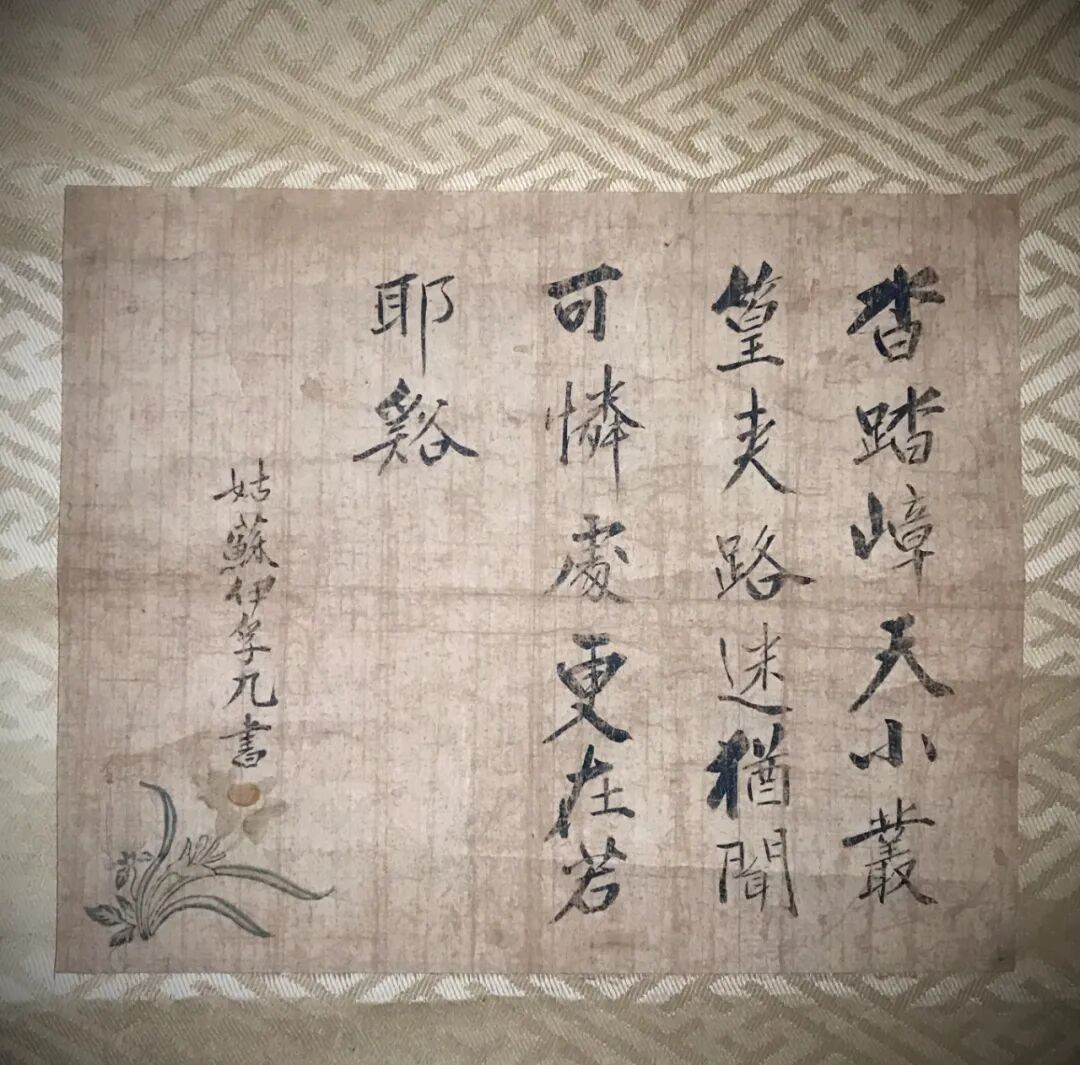 沓踏嶂天小叢
篁夾路迷猶聞
可憐處更在若
耶谿
姑蘇伊孚九書